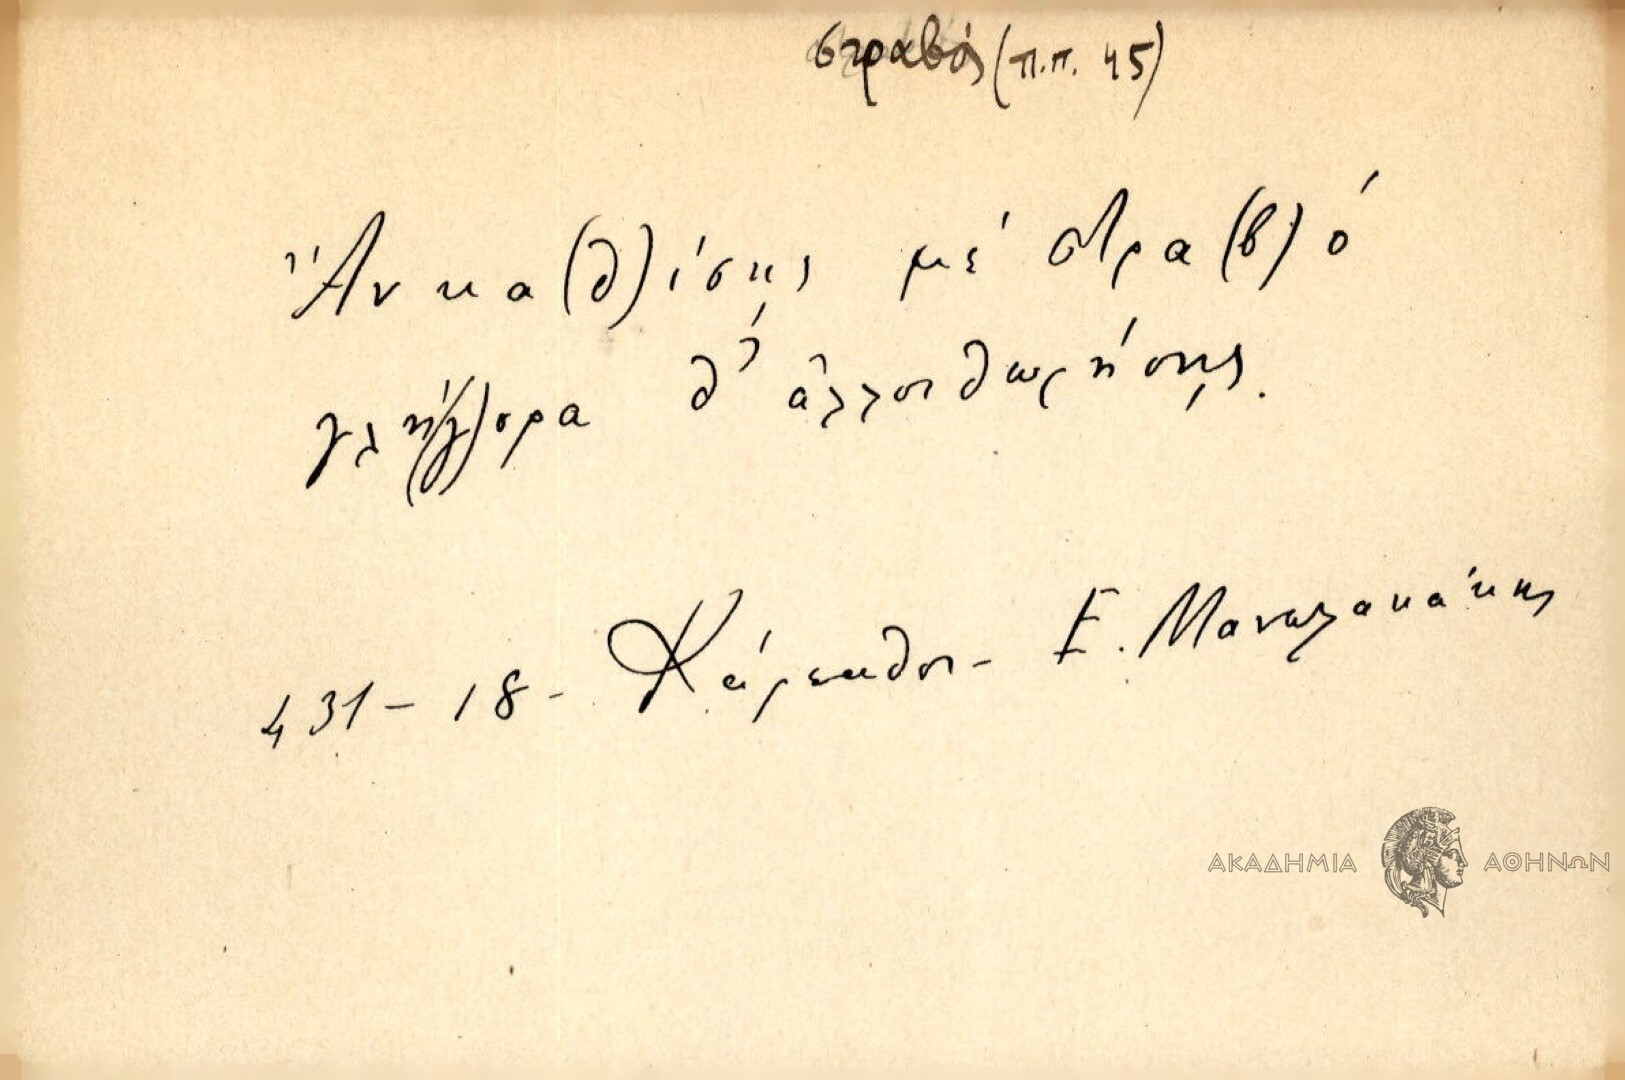 στραβός (π.π. 45)
Ἄν κα(θ)ίσῃς μέ στρα(β)ό
γλή(γ)ορα θ' ἀλλοιθωρήσῃς.
431 - 18 - Κάρπαθος - Ε. Μανωλακάκης
ΑΚΑΔΗΜΙΑ ΑΘΗΝΩΝ